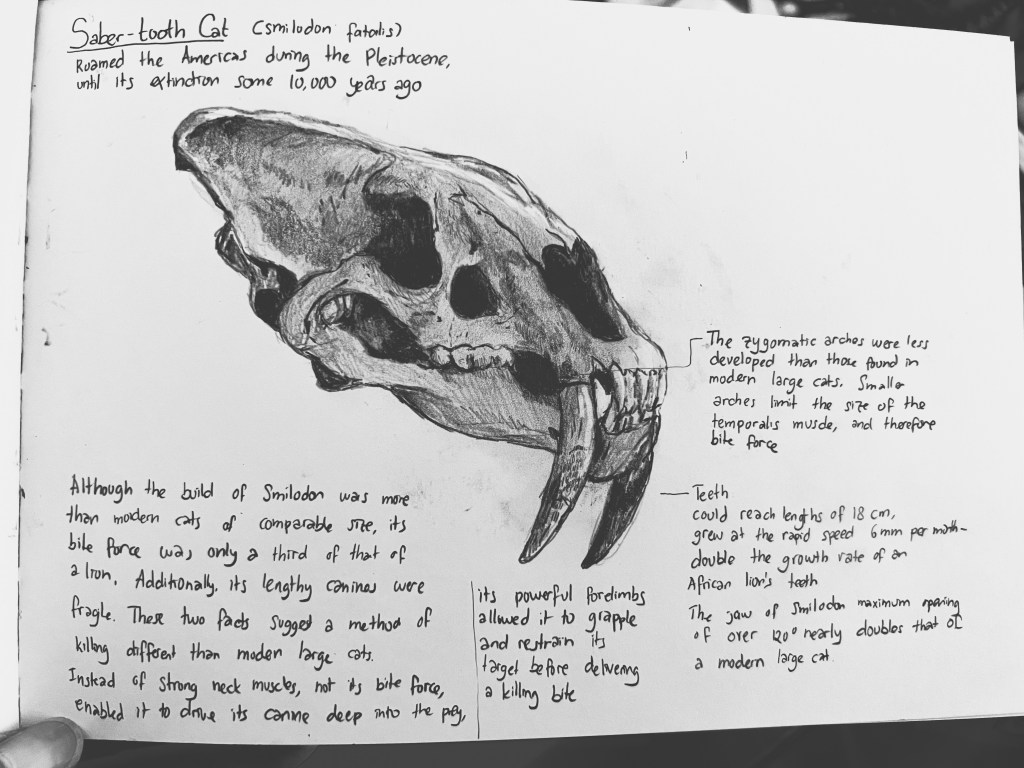 Saber-tooth Cat (smilodon fatalis)
Roamed the Americas during the Pleistocene,
until its extinction some 10,000 years ago
The zygomatic arches were less
developed than those found in
modern large cats. Smaller
arches limit the size of the
temporalis muscle, and therefore
bite force
Teeth
could reach lengths of 18 cm,
grew at the rapid speed 6mm per month-
double the growth rate of an
African lion's teeth
The jaw of Smilodon maximum opening
of over 120° nearly doubles that of
a modern large cat.
Although the build of Smilodon was more
than mordern cats of comparable size, its
bite force was only a third of that of
a lion. Additionally, its lengthy canines were
fragile. These two facts suggest a method of
killing different than modern large cats.
Instead of strong neck muscles, not its bite force,
enabled it to drive its canine deep into the prey,
its powerful fordimbs
allowed it to grapple
and restrain its
target before delivering
a killing bite